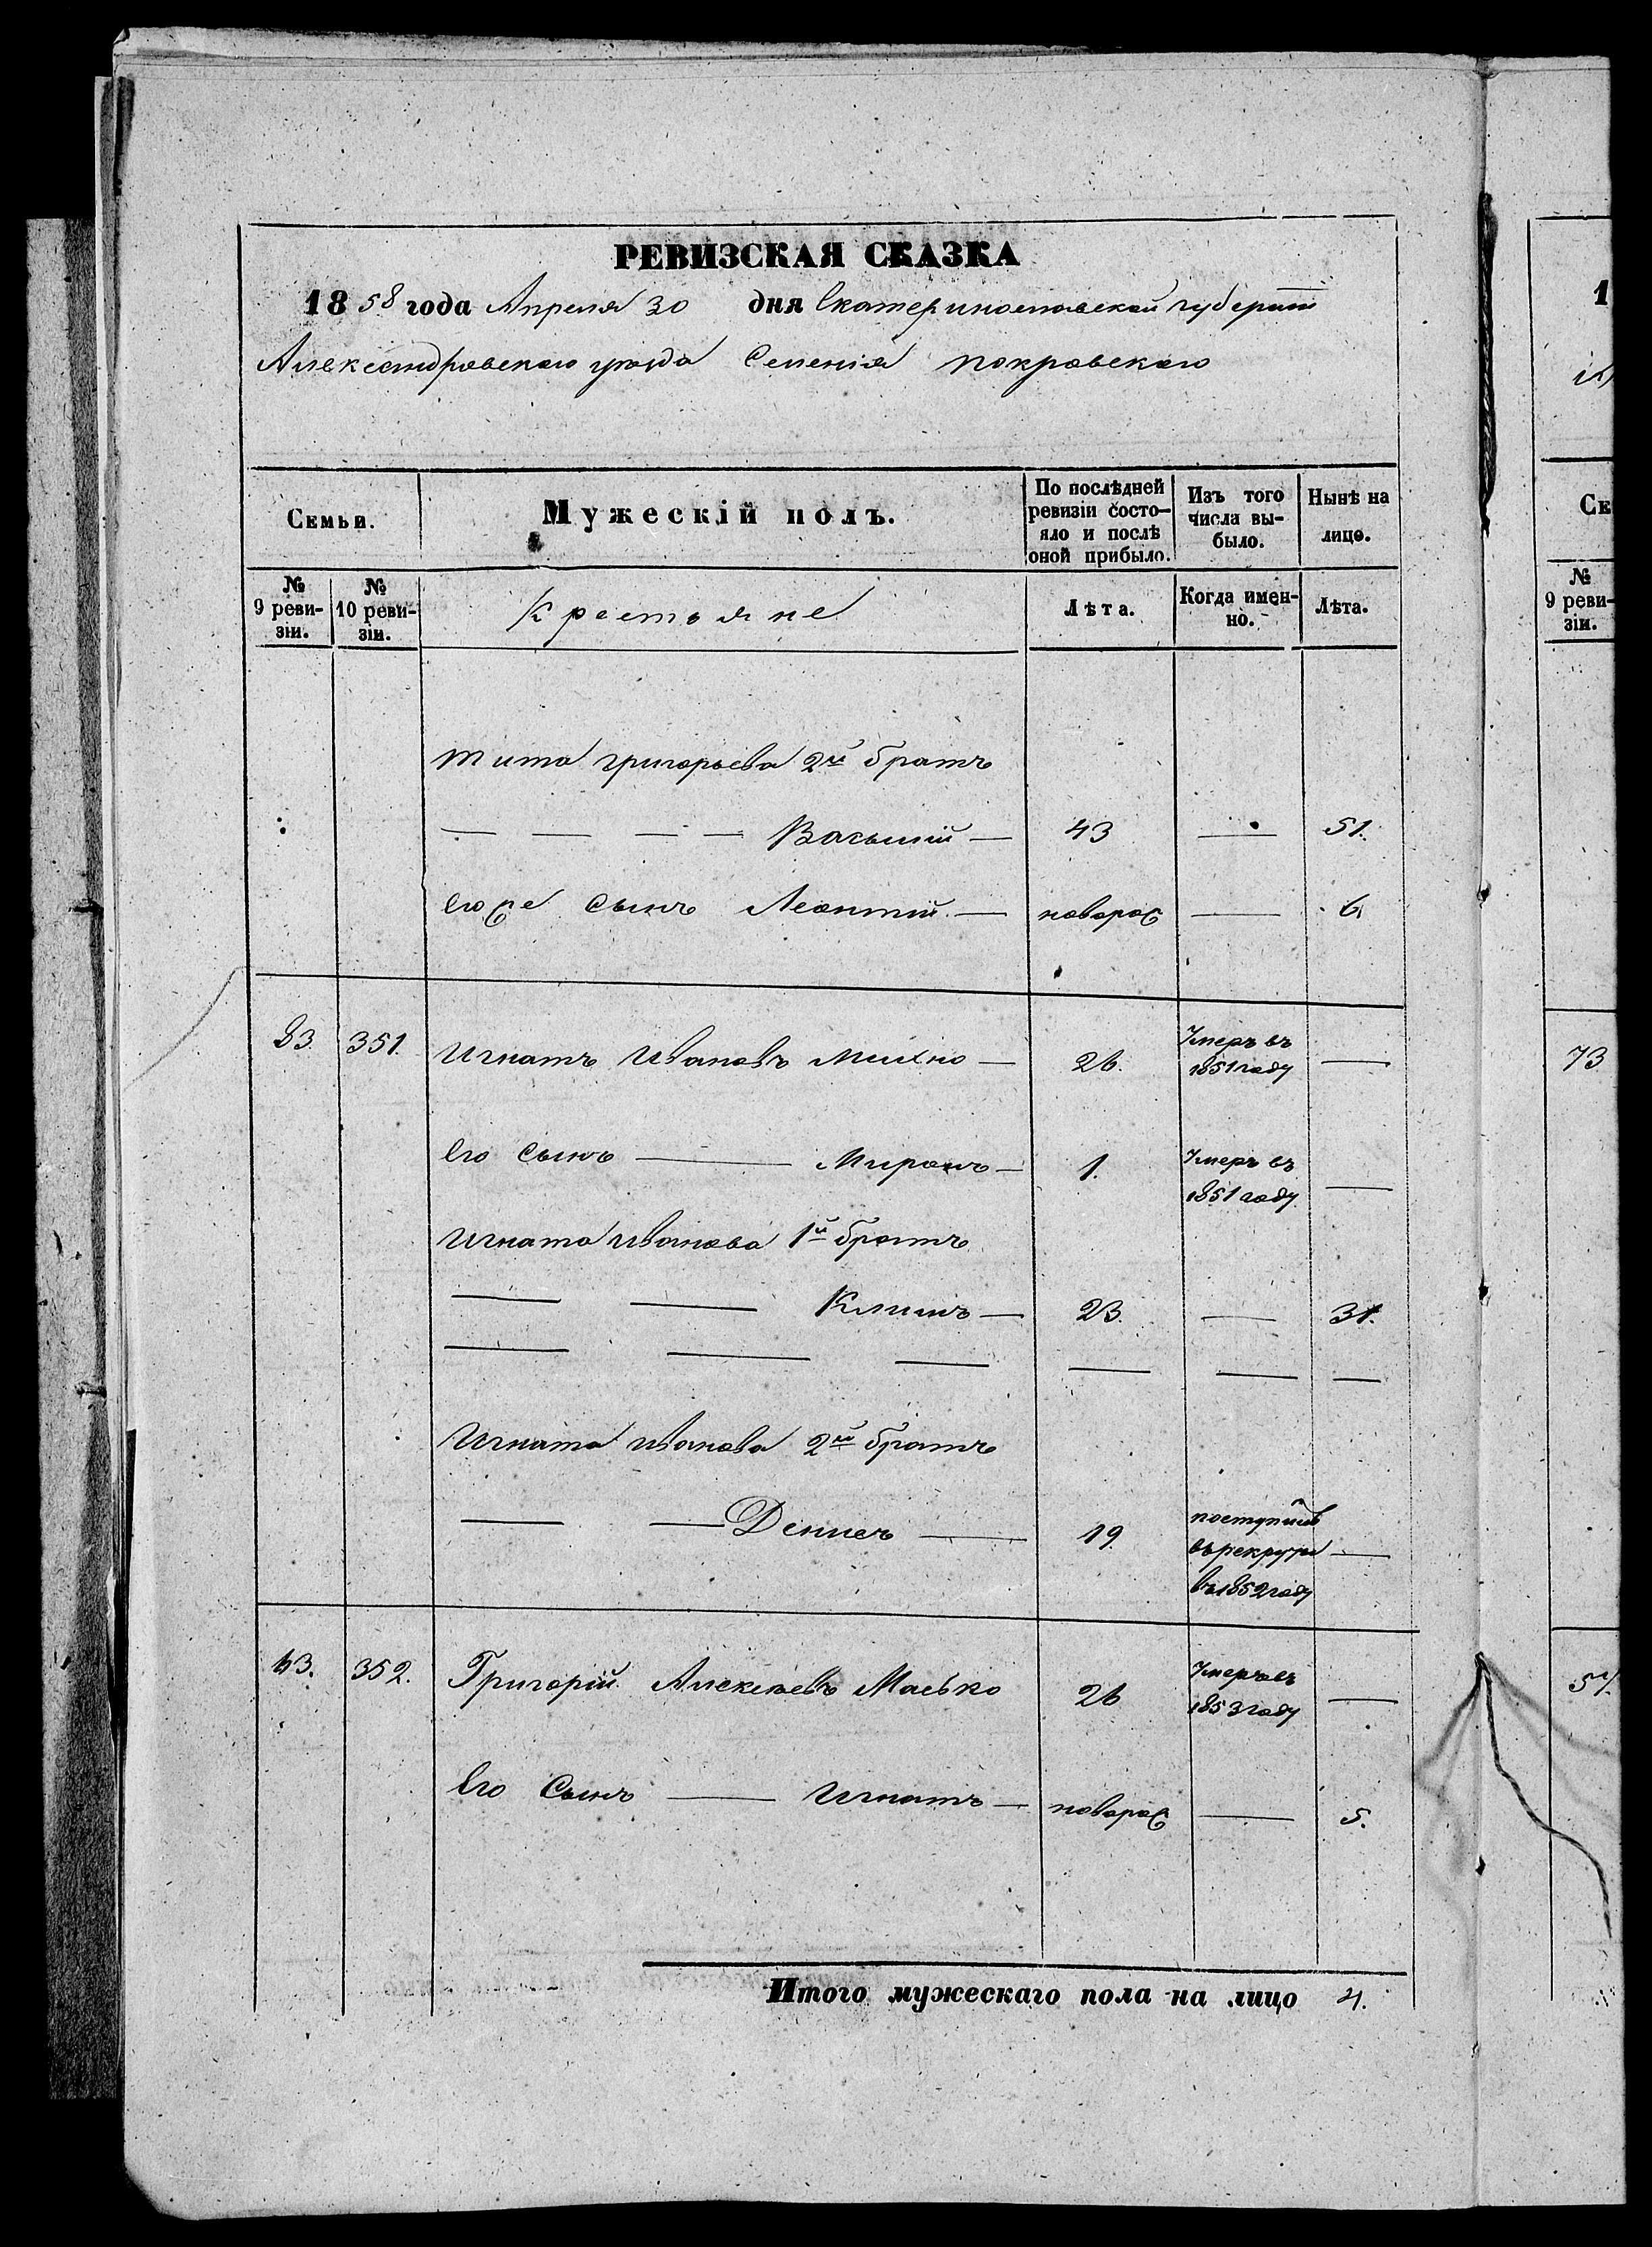 РЕВИЗСКАЯ СКАЗКА
1858 года Апреля 30 дня Екатеринославской губернiи
Александровскаго уѣзда Селенiя Покровскаго
Семьи.
Мужескiй полъ.
По послѣдней ревизiи состо-
яло и послѣ оной прибыло.
Изъ того числа вы-
было.
Нынѣ на лицо.
№ 9 реви-
зiи.
№ 10 реви-
зiи.
Крестьяне
Лѣта.
Когда имен-
но.
Лѣта.
Тита Григорьева 2й братъ
— — — — Василiй — 43 — 51.
его же сынъ Леонтiй — новорож — 6.
83. 351. Игнатъ Ивановъ Михно — 26. Умеръ въ 1851 году —
Его сынъ — Миронъ — 1. Умеръ въ 1851 году —
Игната Иванова 1й братъ
— — Климъ — 23. — 31.
— — — — — —
Игната Иванова 2й братъ
— — Денисъ — 19. поступилъ въ рекруты въ 1852 году —
43. 352. Григорiй Алексѣевъ Масько 26 Умеръ въ 1853 году —
Его Сынъ — Игнатъ — новорож — 5.
Итого мужескаго пола на лицо 4.
1
Се
№ 9 реви-
зiи.
73
57.